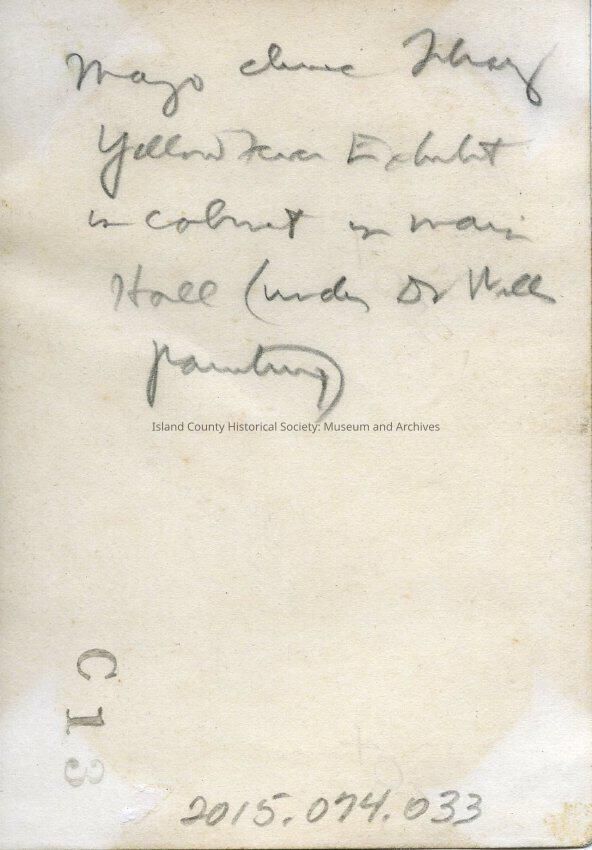 Mayo clinic Library
Yellow Fever Exhibit
in cabinet in main
Hall (under Dr Will
painting)
Island County Historical Society: Museum and Archives
C13
2015.074.033